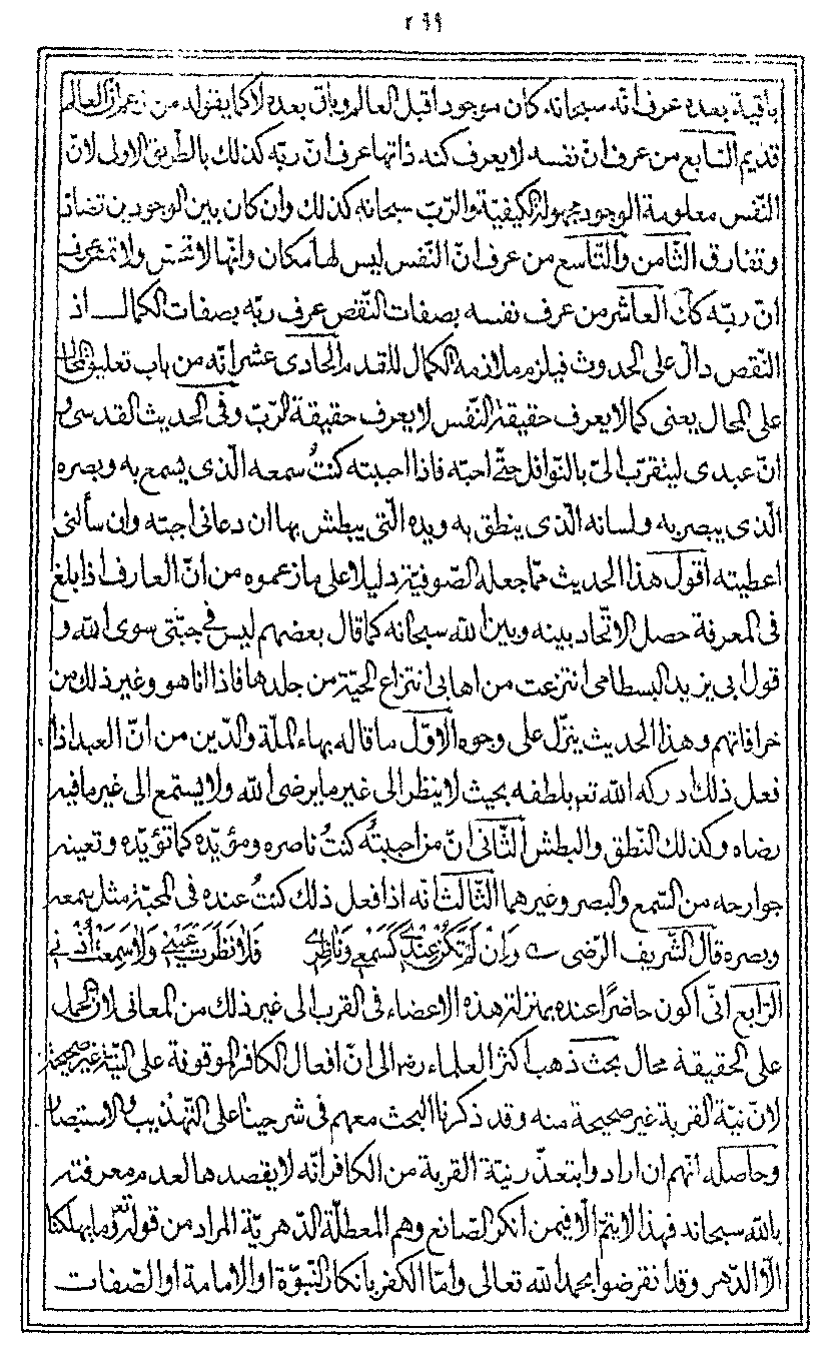 ٢٩٩
باقية بعده عرف انّه سبحانه كان موجودا قبل العالم وباق بعده لا كما يقوله من زعم انّ العالم
قديم السّابع من عرف انّ نفسه لا يعرف كنه ذاتها عرف انّ ربّه كذلك بالطّريق الاولى لانّ
النّفس معلومة الوجود مجهولة الكيفيّة والرّبّ سبحانه كذلك وان كان بين الوجودين تضادّ
وتفارق الثّامن والتّاسع من عرف انّ النّفس ليس لها مكان وانّها لا تحسّ ولا تمسّ عرف
انّ ربّه كك العاشر من عرف نفسه بصفات النّقص عرف ربّه بصفات الكمال اذ
النّقص دالّ على الحدوث فيلزم ملازمة الكمال للقدم الحادى عشر انّه من باب تعليق المحال
على المحال يعنى كما لا يعرف حقيقة النّفس لا يعرف حقيقة الرّبّ وفى الحديث القدسى
انّ عبدى ليتقرّب الىّ بالنّوافل حتّى احبّه فاذا احببته كنتُ سمعه الّذى يسمع به وبصره
الّذى يبصر به ولسانه الّذى ينطق به ويده الّتى يبطش بها ان دعانى اجبته وان سألنى
اعطيته اقول هذا الحديث ممّا جعله الصّوفيّة دليلا على ما زعموه من انّ العارف اذا بلغ
فى المعرفة حصل الاتّحاد بينه وبين الله سبحانه كما قال بعضهم ليس فى جبّتى سوى الله و
قول ابى يزيد البسطامى انتزعت من اهابى انتزاع الحيّة من جلدها فاذا انا هو وغير ذلك من
خرافاتهم وهذا الحديث ينزّل على وجوه الاوّل ما قاله بهاء الملّة والدّين من انّ العبد اذا
فعل ذلك ادركه الله تع بلطفه بحيث لا ينظر الى غير ما يرضى الله ولا يستمع الى غير ما فيه
رضاه وكذلك النّطق والبطش الثّانى انّ من احببتُه كنتُ ناصره ومؤيّده كما تؤيّده وتعينه
جوارحه من السّمع والبصر وغيرهما الثّالث انّه اذا فعل ذلك كنتُ عنده فى المحبّة مثل سمعه
وبصره قال الشّريف الرّضى وَاِنْ لَمْ تَكُنْ عِنْدِى كَسَمْعِى وَنَاظِرِى فَلَا نَظَرَتْ عَيْنِى وَلَا سَمِعَتْ اُذْنِى
الرّابع انّى اكون حاضرًا عنده بمنزلة هذه الاعضاء فى القرب الى غير ذلك من المعانى لانّ الحمل
على الحقيقة محال بحث ذهب اكثر العلماء رض الى انّ افعال الكافر الموقوفة على النيّة غير صحيحة
لانّ نيّة القربة غير صحيحة منه وقد ذكرنا البحث معهم فى شرحينا على التّهذيب والاستبصار
وحاصله انّهم ان ارادوا بتعذّر نيّة القربة من الكافر انّه لا يقصدها لعدم معرفته
بالله سبحانه فهذا لا يتمّ الّا فيمن انكر الصّانع وهم المعطلّة الدّهريّة المراد من قوله تع وما يهلكنا
الّا الدّهر وقد انقرضوا بحمد الله تعالى وامّا الكفر بانكار النّبوّة او الامامة او الصّفات